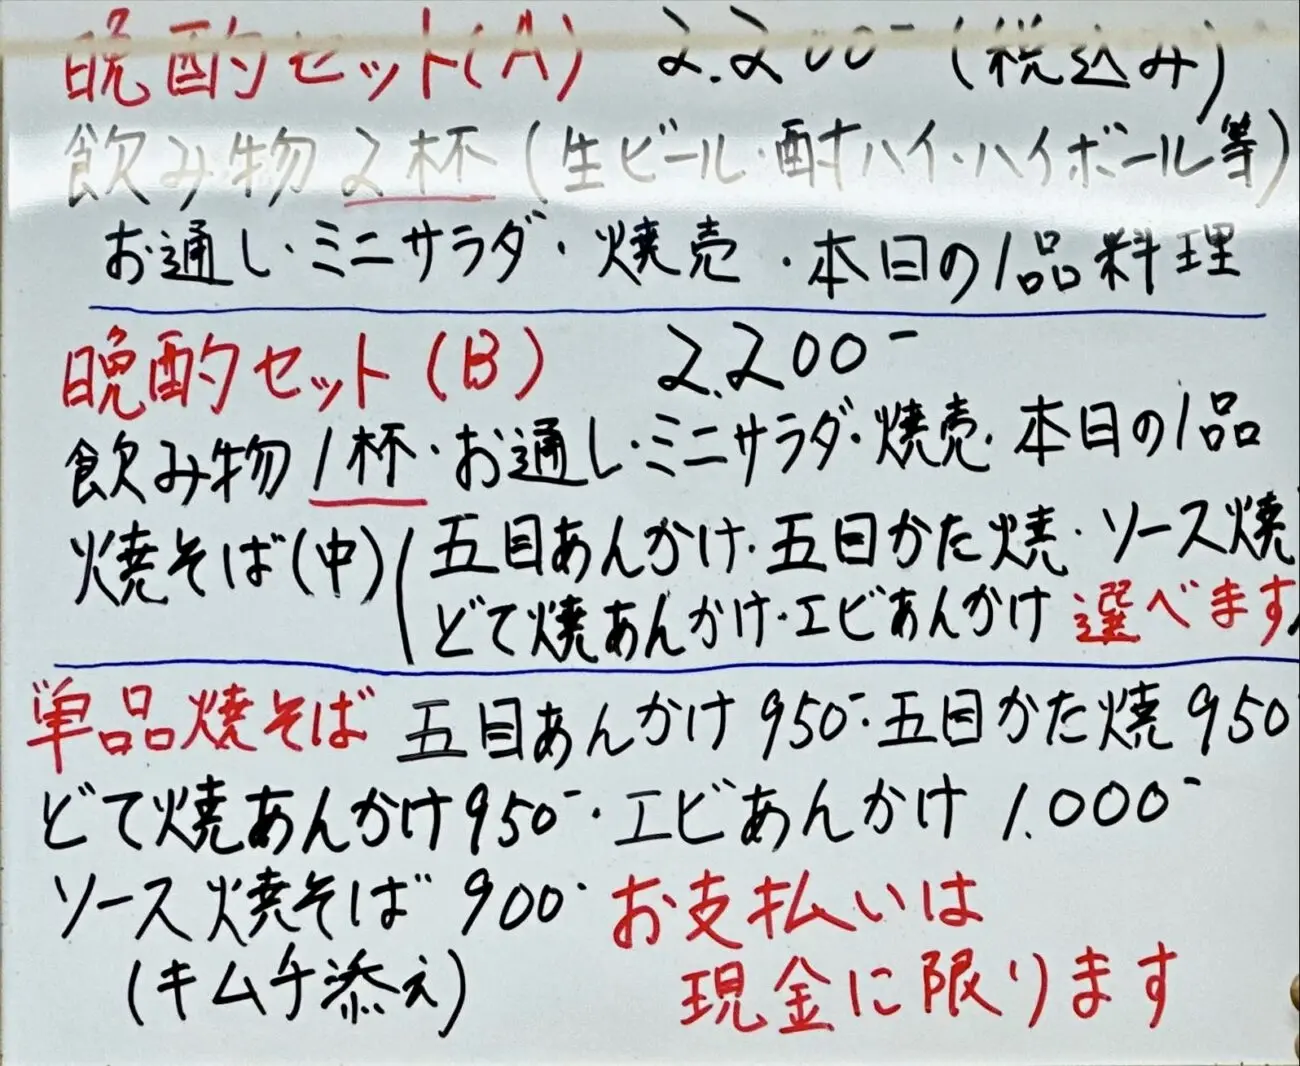 晩酌セット(A) 2.200-(税込み)
飲み物2杯(生ビール・酎ハイ・ハイボール等)
お通し・ミニサラダ・焼売・本日の1品料理
晩酌セット(B) 2.200-
飲み物1杯・お通し・ミニサラダ・焼売・本日の1品
焼そば(中)(五目あんかけ・五目かた焼・ソース焼
どて焼あんかけ・エビあんかけ 選べます)
単品焼そば 五目あんかけ950-・五目かた焼950
どて焼あんかけ950-・エビあんかけ 1.000-
ソース焼そば 900- お支払いは
(キムチ添え) 現金に限ります